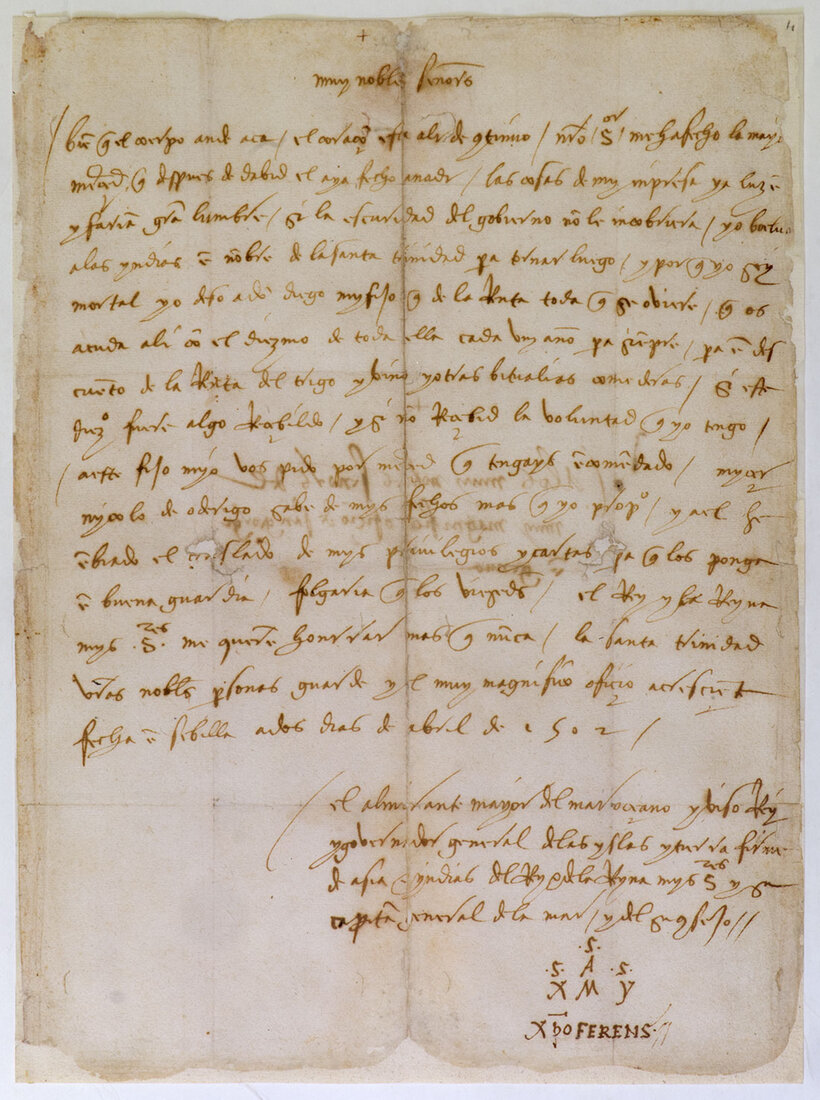 +
muy nobles señores
bie͂ q̃ el coerpo ande aca / el coraço͂ esta ali de q̃tinuo / nr̃o S.or me ha fecho la mayor
merced q̃ despues de dabid el aya fecho a nadi / las cosas de my inpresa ya luze͂
y faria͂ gra͂ lumbre / si la escuridad del gobierno no͂ le incobriera / yo boelvo
a las yndias e͂ no͂bre de la santa trinidad pa tornar luego / y por q̃ yo soy
mortal yo deso a do͂ diego my fijo q̃ de la Re͂ta toda q̃ se oviere / q̃ os
acuda ali co͂ el diezmo de toda ella cada un año pa sie͂pre / pa e͂ des
cue͂to de la Re͂ta del trigo y vino y otras bitualias comederas / si este
diezo fuere algo Recibildo / y si no͂ Recibid la voluntad q̃ yo tengo /
a este fijo myo vos pido por merced q̃ tengays e͂come͂dado / miçer
nycolo de oderigo sabe de mys fechos mas q̃ yo propo / y a el he
e͂biado el treslado de mys privilegios y cartas pa q̃ los ponga
e͂ buena guardia / folgaria q̃ los viesedes / el Rey y la Reyna
mys S.res me quere͂ honrrar mas q̃ nu͂ca / la santa trinidad
vr̃as nobles personas guarde y el muy magnifico oficio acresciente
fecha e͂ sebilla a dos dias de abril de 1502 /
el almirante mayor del mar oceano y viso Rey
y governador general de las yslas y tierra firme
de asia e yndias del Rey e de la Reyna mys S.res y su
capita͂ general de la mar / y del su q̃sejo //
.S.
.S. A .S.
X M Y
Xp̃o FERENS. //